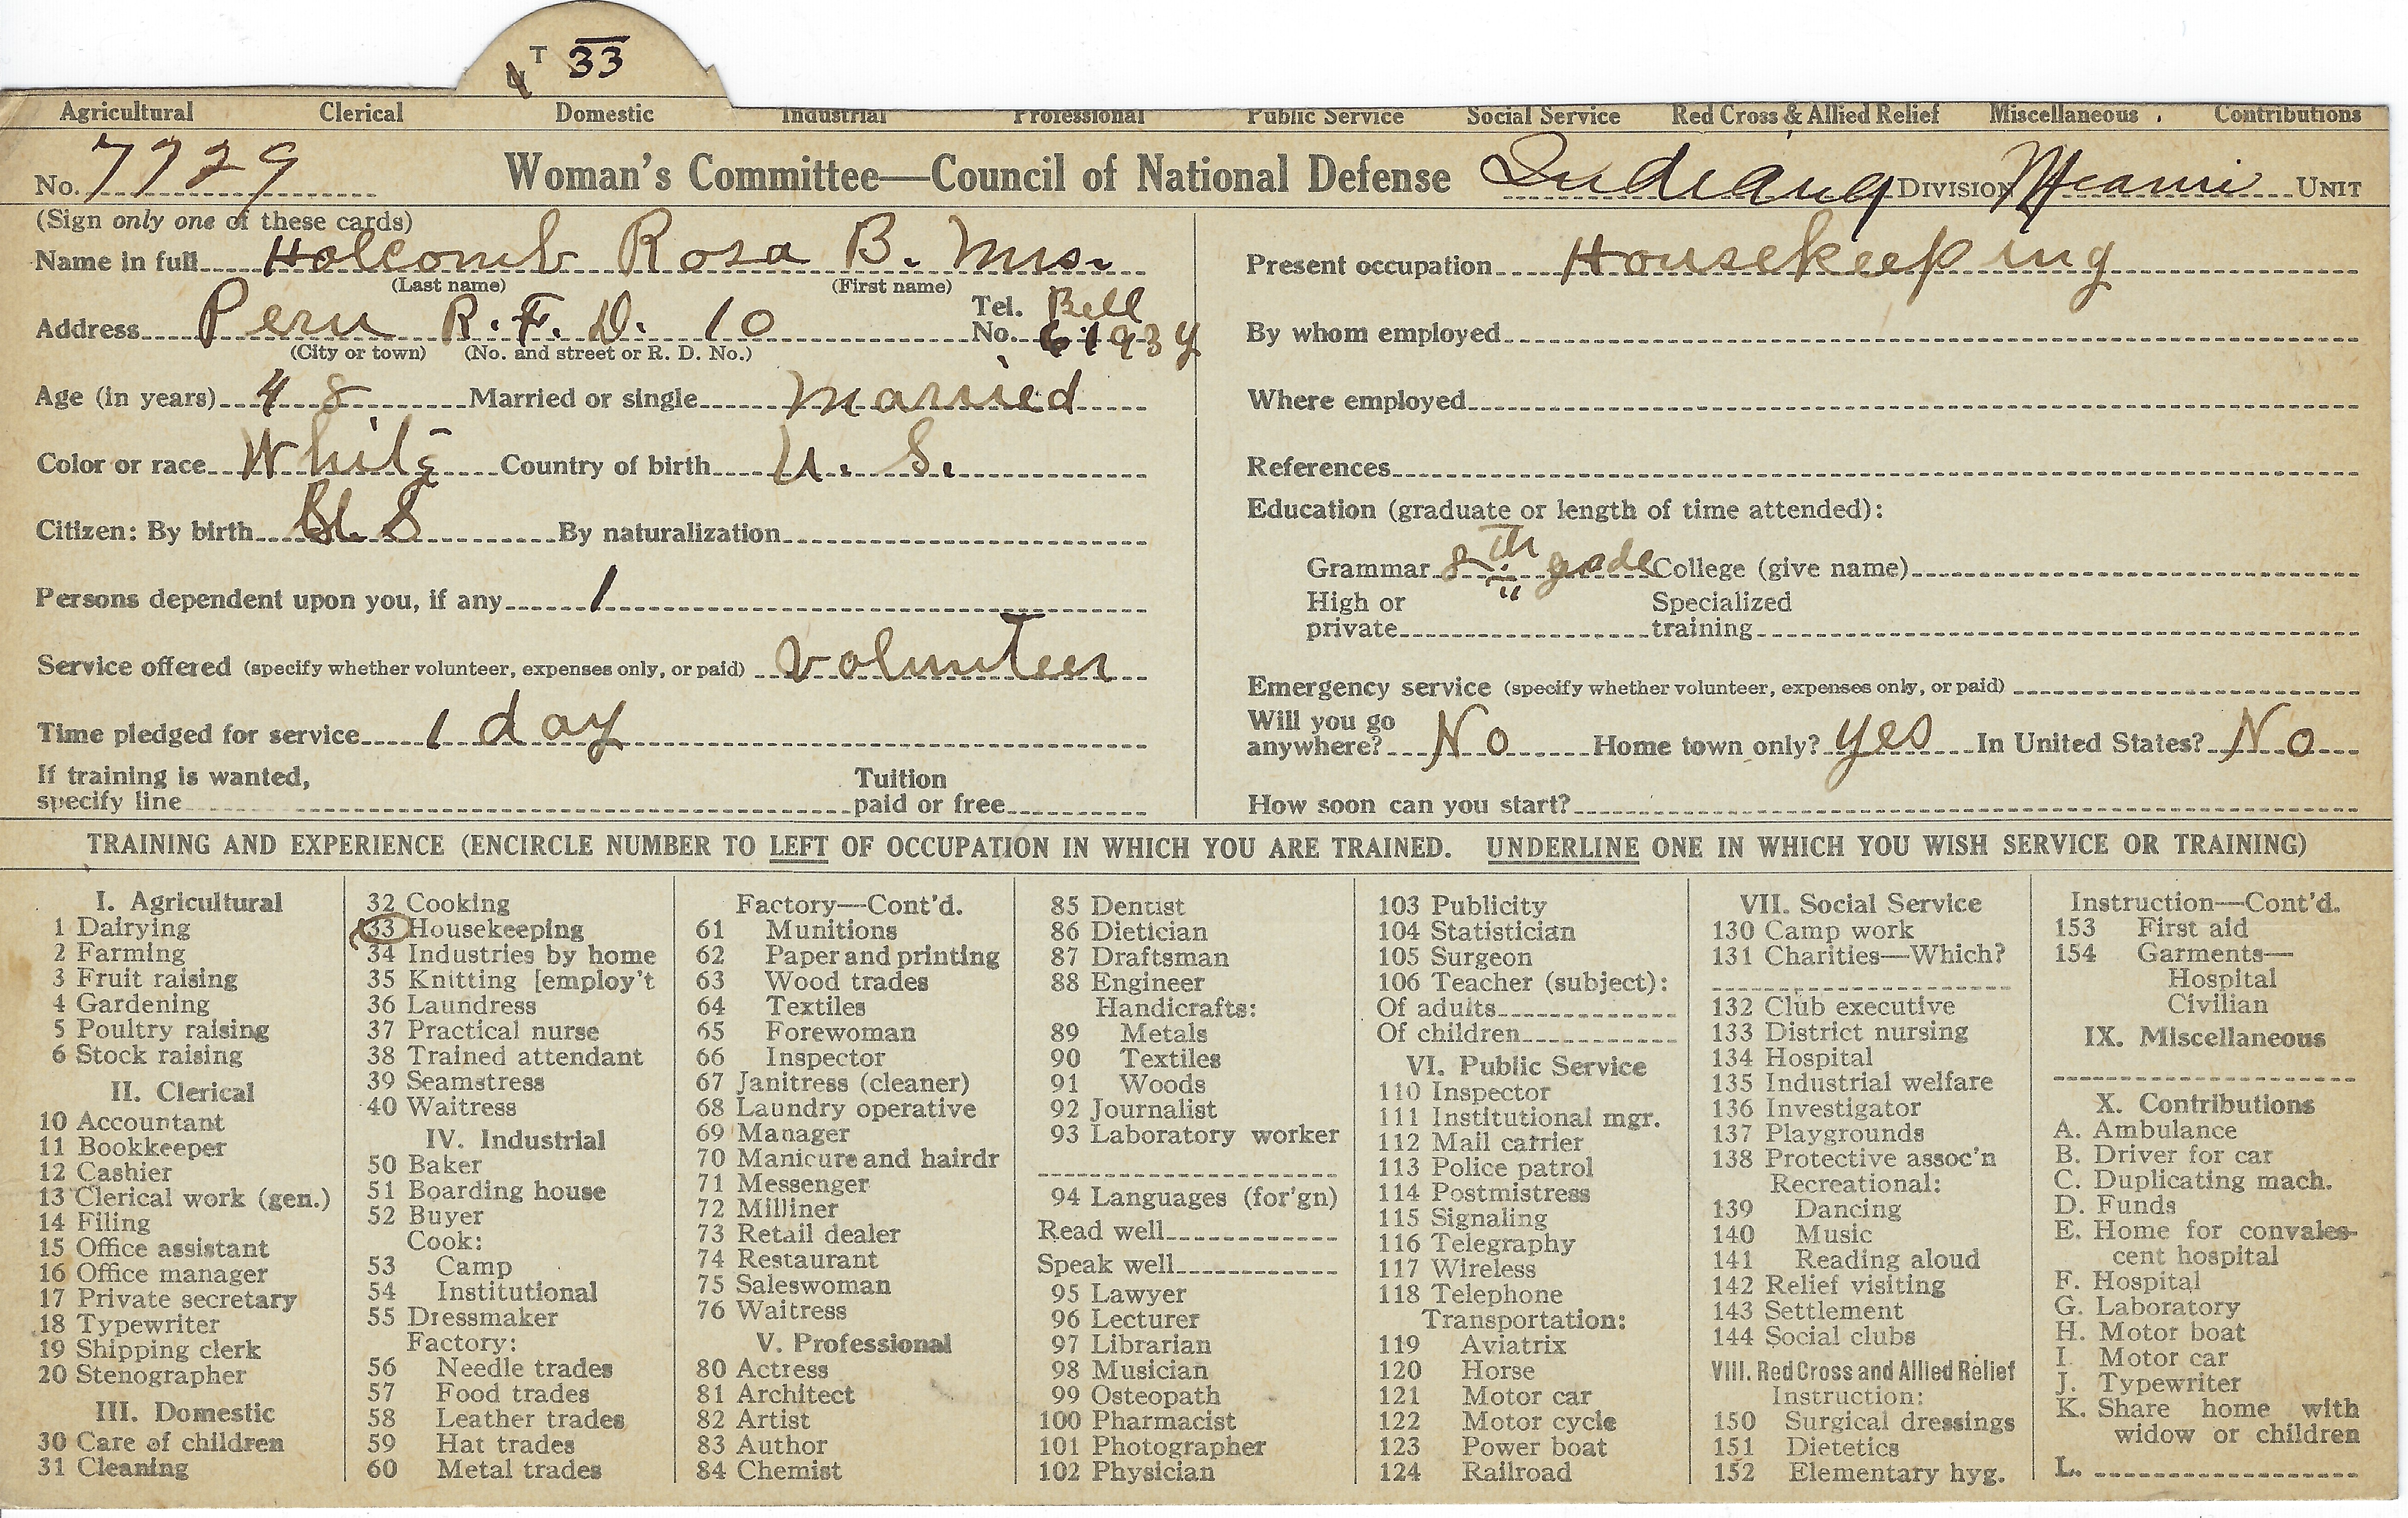 T 33
Agricultural Clerical Domestic Industrial Professional Public Service Social Service Red Cross & Allied Relief Miscellaneous Contributions
No. 7729 Woman's Committee—Council of National Defense Indiana DIVISION Miami UNIT
(Sign only one of these cards)
Name in full Holcomb Rosa B. Mrs.
(Last name) (First name)
Address Peru R. F. D. 10 Tel. No. Bell 6193Y
(City or town) (No. and street or R. D. No.)
Age (in years) 48 Married or single married
Color or race White Country of birth U. S.
Citizen: By birth U. S By naturalization
Persons dependent upon you, if any 1
Service offered (specify whether volunteer, expenses only, or paid) volunteer
Time pledged for service 1 day
If training is wanted,
specify line
Tuition
paid or free
Present occupation Housekeeping
By whom employed
Where employed
References
Education (graduate or length of time attended):
Grammar 8th grade College (give name)
High or
private
Specialized
training
Emergency service (specify whether volunteer, expenses only, or paid)
Will you go
anywhere? No Home town only? yes In United States? No
How soon can you start?
TRAINING AND EXPERIENCE (ENCIRCLE NUMBER TO LEFT OF OCCUPATION IN WHICH YOU ARE TRAINED. UNDERLINE ONE IN WHICH YOU WISH SERVICE OR TRAINING)
I. Agricultural
1 Dairying
2 Farming
3 Fruit raising
4 Gardening
5 Poultry raising
6 Stock raising
II. Clerical
10 Accountant
11 Bookkeeper
12 Cashier
13 Clerical work (gen.)
14 Filing
15 Office assistant
16 Office manager
17 Private secretary
18 Typewriter
19 Shipping clerk
20 Stenographer
III. Domestic
30 Care of children
31 Cleaning
32 Cooking
33 Housekeeping
34 Industries by home
35 Knitting [employ't
36 Laundress
37 Practical nurse
38 Trained attendant
39 Seamstress
40 Waitress
IV. Industrial
50 Baker
51 Boarding house
52 Buyer
Cook:
53 Camp
54 Institutional
55 Dressmaker
Factory:
56 Needle trades
57 Food trades
58 Leather trades
59 Hat trades
60 Metal trades
Factory—Cont'd.
61 Munitions
62 Paper and printing
63 Wood trades
64 Textiles
65 Forewoman
66 Inspector
67 Janitress (cleaner)
68 Laundry operative
69 Manager
70 Manicure and hairdr
71 Messenger
72 Milliner
73 Retail dealer
74 Restaurant
75 Saleswoman
76 Waitress
V. Professional
80 Actress
81 Architect
82 Artist
83 Author
84 Chemist
85 Dentist
86 Dietician
87 Draftsman
88 Engineer
Handicrafts:
89 Metals
90 Textiles
91 Woods
92 Journalist
93 Laboratory worker
94 Languages (for'gn)
Read well
Speak well
95 Lawyer
96 Lecturer
97 Librarian
98 Musician
99 Osteopath
100 Pharmacist
101 Photographer
102 Physician
103 Publicity
104 Statistician
105 Surgeon
106 Teacher (subject):
Of adults
Of children
VI. Public Service
110 Inspector
111 Institutional mgr.
112 Mail carrier
113 Police patrol
114 Postmistress
115 Signaling
116 Telegraphy
117 Wireless
118 Telephone
Transportation:
119 Aviatrix
120 Horse
121 Motor car
122 Motor cycle
123 Power boat
124 Railroad
VII. Social Service
130 Camp work
131 Charities—Which?
132 Club executive
133 District nursing
134 Hospital
135 Industrial welfare
136 Investigator
137 Playgrounds
138 Protective assoc'n
Recreational:
139 Dancing
140 Music
141 Reading aloud
142 Relief visiting
143 Settlement
144 Social clubs
VIII. Red Cross and Allied Relief
Instruction:
150 Surgical dressings
151 Dietetics
152 Elementary hyg.
Instruction—Cont'd.
153 First aid
154 Garments—
Hospital
Civilian
IX. Miscellaneous
X. Contributions
A. Ambulance
B. Driver for car
C. Duplicating mach.
D. Funds
E. Home for convales-
cent hospital
F. Hospital
G. Laboratory
H. Motor boat
I. Motor car
J. Typewriter
K. Share home with
widow or children
L.